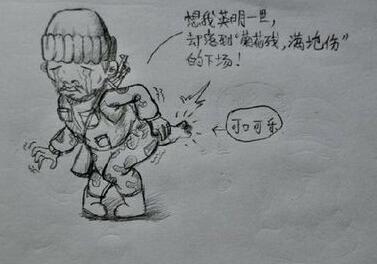 想我英明一旦,
却落到“菊花残,满地伤”
的下场!
可口可乐